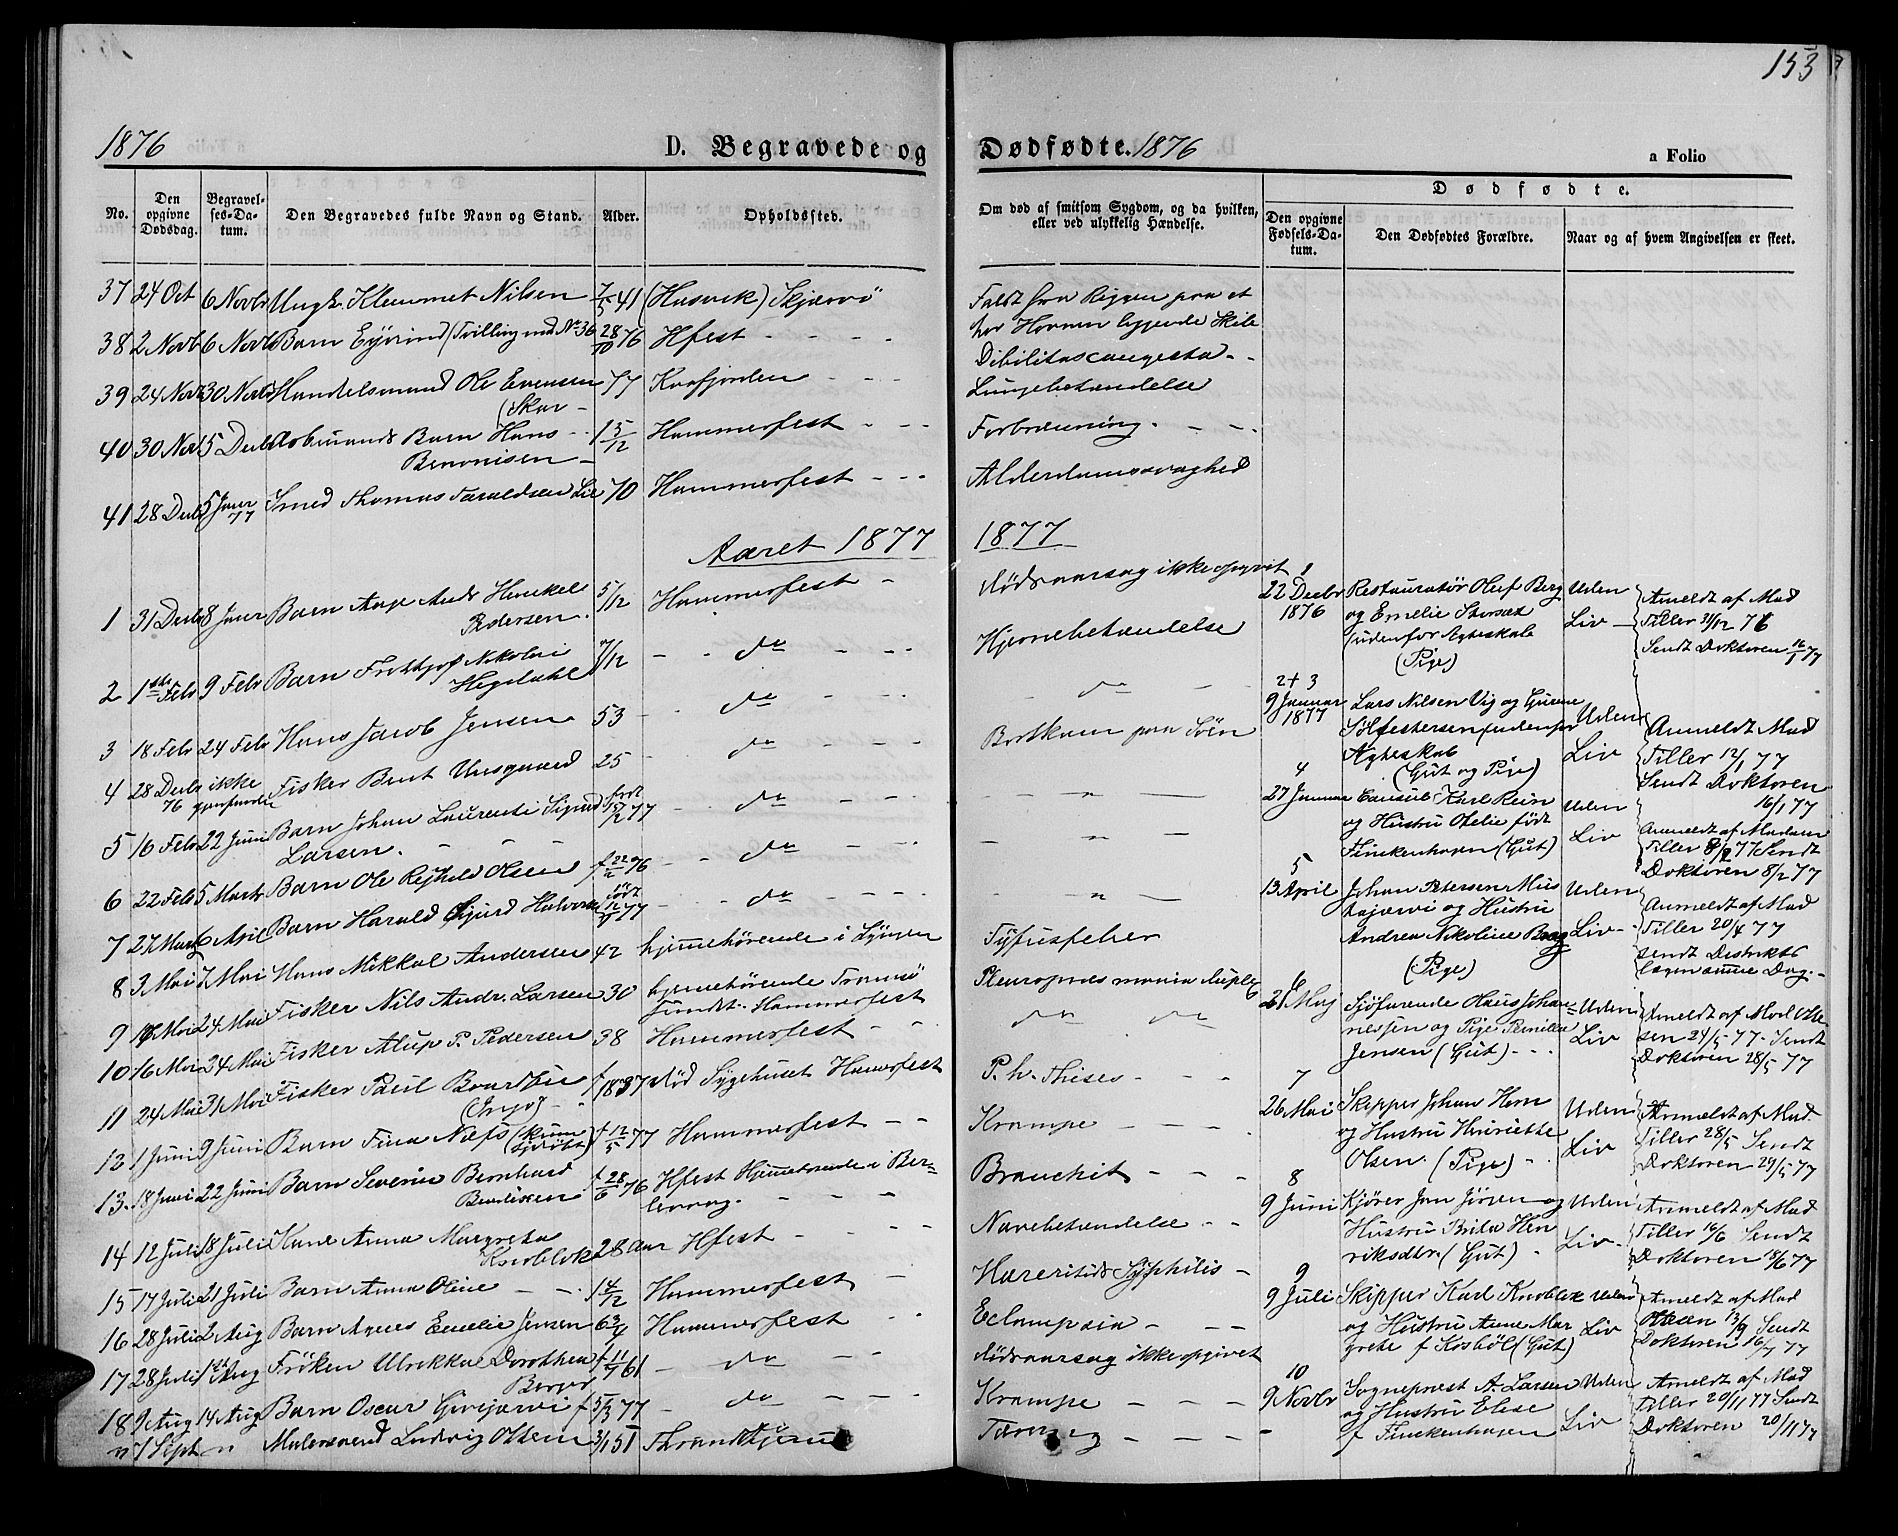 153
1876
D. Begravede og
Dødfødte. 1876
a Folio
No.
Den opgivne Dødsdag.
Begravelses-Datum.
Den Begravedes fulde Navn og Stand.
Alder.
Opholdssted.
Om død af smitsom Sygdom, og da hvilken, eller ved ulykkelig Hændelse.
Dødfødte.
Den opgivne Fødsels-Datum.
Den Dødfødtes Forældre.
Naar og af hvem Angivelsen er skeet.
37 24 Oct 6 Novbr Ungk. Klemmet Nilsen 7/5 41 (Husvik) Skjærvö
Faldt fra Riggen paa et
her Havnen liggende Skib
38 2 Novb 6 Novb Barn Eyvind (Tvilling med No 36 28/10 76 Hfest
39 24 Novb 30 Novb Handelsmand Ole Evensen 77 Kvafjorden
(Skar
Lungebetændelse
40 30 Nov 5 Decb Arbmands Barn Hans 1 5/12 Hammerfest
Benonisen
Forbrænning.
41 28 Decb 5 Janr 77 Smed Thomas Taraldsen Lie 70 Hammerfest
Alderdomssvaghed
Aaret 1877
1877
1 31 Decb 8 Janr Barn Aage Andr Henckel 5/12 Hammerfest
Pedersen.
dödsaarsag ikke opgivet
2 1ste Febr 9 Febr Barn Frithjof Nikolai 7/12 do
Hegdahl
Hjernebetændelse
3 18 Febr 24 Febr Hans Jacob Jensen 53 do
do
4 28 Decb 76 ikke gjenfunden Fisker Bent Unsgaard 25 do
Bortkom paa Söen
5 16 Febr 22 Juni Barn Johan Laurents Sigurd födt 15/2 77 do
Larsen.
6 22 Feb 5 Marts Barn Ole Olsen f 22/2 76 do
7 27 Marts 6 April Barn Harald Sjurd Halvorsen födt 77 do
8 3 Mai 7 Mai Hans Mikkal Andersen 42 hjemmehörende i Lyngen
Tyfusfeber
9 Mai 24 Mai Fisker Nils Andr. Larsen 30 hjemmehörende Tromsö
sundt. Hammerfest
10 16 Mai 24 Mai Fisker P. Pedersen 38 Hammerfest
do do
11 24 Mai 31 Mai Fisker Paul f 1837 död Sygehuset Hamerfest
P.h. Thises
12 1 Juni 9 Juni Barn Fina Næss f 12/5 77 Hammerfest
Krampe
13. 18 Juni 22 Juni Barn Severin Bernhard f 28/6 76 Hfest Hjemmehörende i Ber=
Bendixen
levaag.
Bronchit
14 12 Juli 18 Juli Kone Anna Margreta 28 Aar Hfest
Knoblok
Navebetændelse
15 17 Juli 21 Juli Barn Anna Oline 1 4/12 Hammerfest
Syphilis
16 28 Juli 2 Aug Barn Agnes Emelie Jensen 6 3/4 Hammerfest
Eclampsia
17 28 Juli 1ste Aug Fröken Ulrikka Dorothea f 11/7 61 do
Berger
dödsaarsag ikke opgivet
18 9 Aug 14 Aug Barn Oscar f 5/3 77 do
Krampe
" 7 Sept " Malersvend Ludvig Olsen 3/1 51 Throndhjem
Tæring
1
22 Decbr 1876 Restauratör Oluf Berg
og Emelie Storsæt
(udenfor Ægteskab
(Pige)
Uden Liv
Anmeldt af Mad
Tiller 31/12 76
Sendt Doktoren 16/1 77
2 + 3
9 Januar 1877 Lars Nilsen Vig og
Sölfestersen (udenfor
Ægteskab
(Gut og Pige)
Uden Liv
Anmeldt Mad
Tiller 12/1 77
Sendt Doktoren
16/1 77
4
27 Januar Consul Karl Rein
og Hustru Otelie födt
Finckenhagen (Gut)
Uden Liv
Anmeldt af Madam
Tiller 8/2 77 Sendt
Doktoren 8/2 77
5
13 April Johan Petersen
og Hustru
Andrea Nikoline Berg
(Pige)
Uden Liv
Anmeldt af Mad
Tiller 20/4 77
sendt Distrikts
lægen samme Dag.
6
21 Maj Sjöfarende Hans Johan=
nessen og Pige Pernille
Jensen (Gut)
Uden Liv
Anmeldt af Mad
sen 24/5 77. Sendt
Doktoren 28/5 77
7
26 Mai Skipper Johan Horn
og Hustru Henriette
Olsen. (Pige)
Uden Liv
Anmeldt af Mad
Tiller 28/5 Sendt
Doktoren 29/5 77
8
9 Juni Kjörer Jan Jörgen og
Hustru Brita Hen
riksdtr. (Gut)
Uden Liv
Anmeldt af Mad
Tiller 16/6 Sendt
Doktoren 18/6 77
9
9 Juli Skipper Karl Knoblok
og Hustru Anne Mar
grete f Kosböl (Gut)
Uden Liv
Anmeldt af Mad
Olsen Sendt
Doktoren 16/7 77
10
9 Novbr Sogneprest A. Larsen
og Hustru Elise
f Finckenhagen
Uden Liv
Anmeldt af Mad
Tiller 20/11 77 Sendt
Doktoren 20/11 77